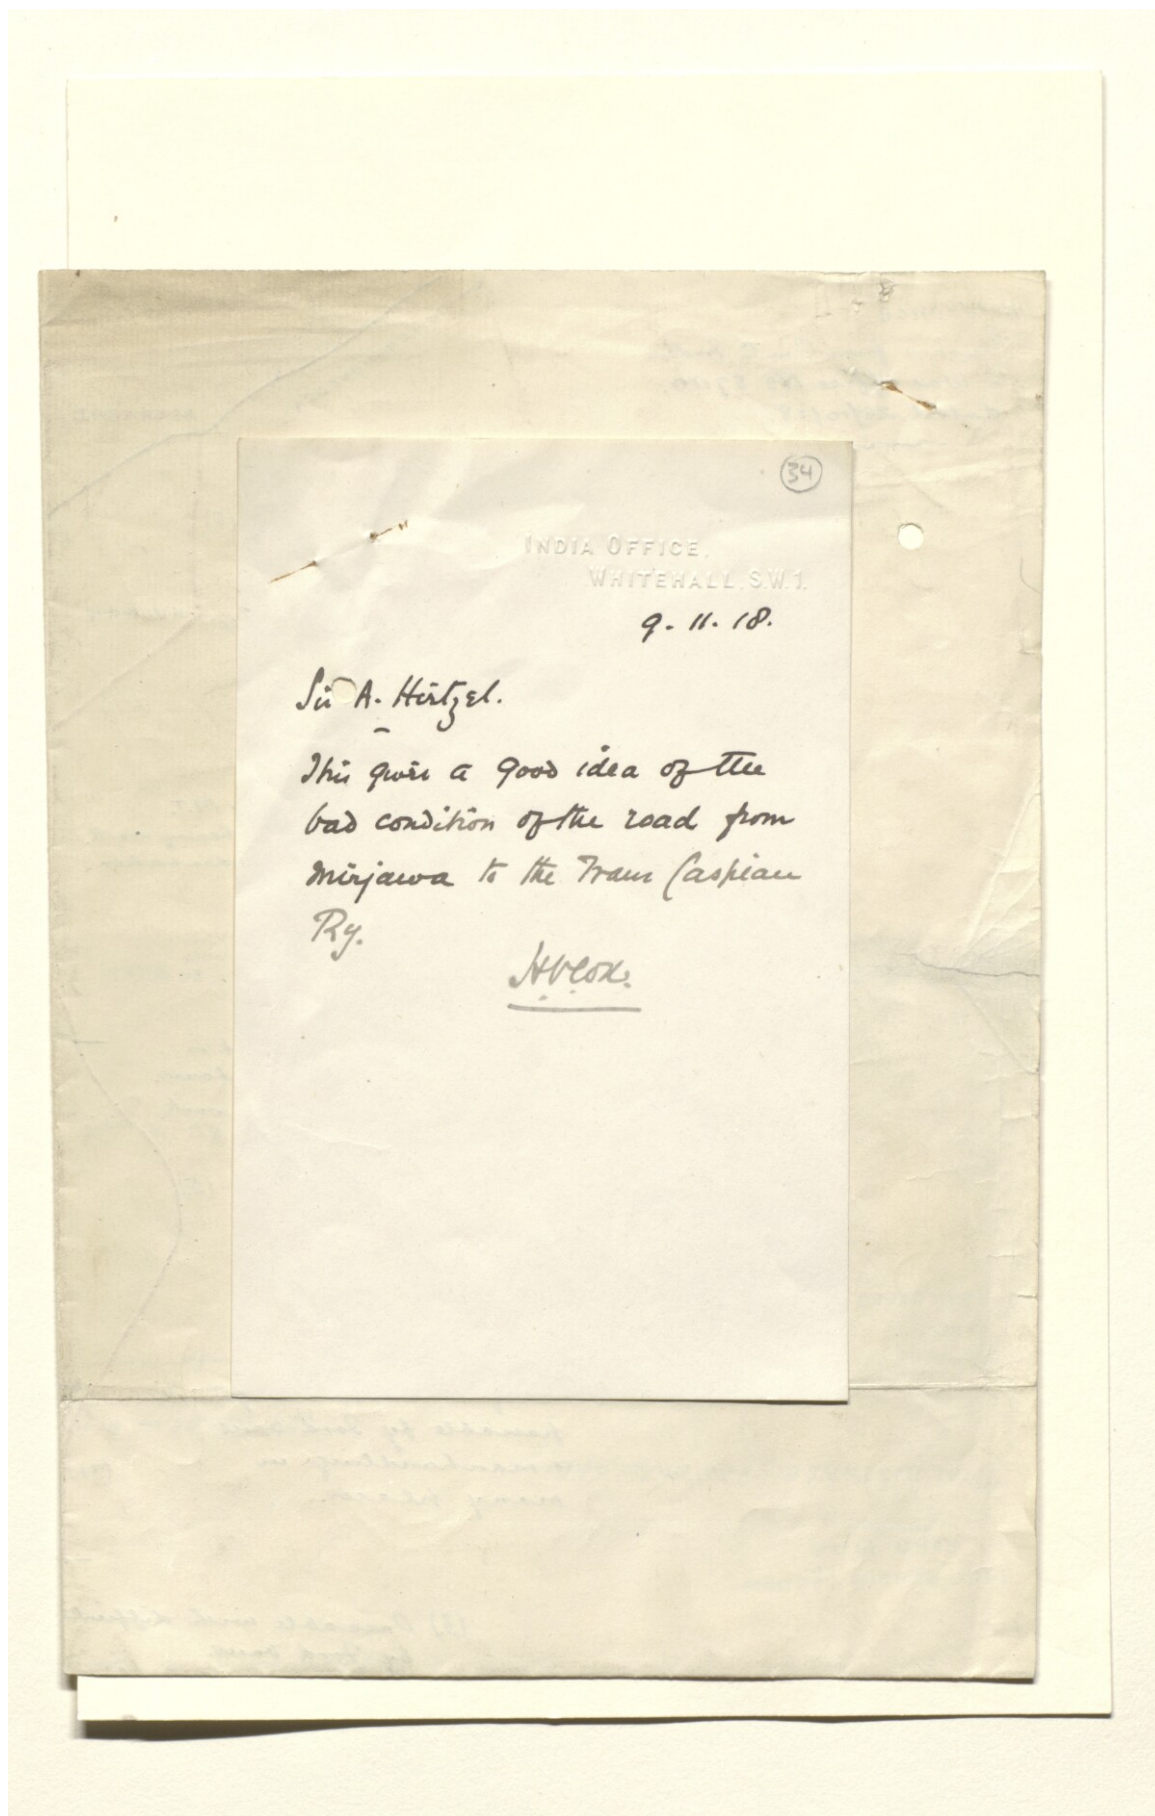 34
INDIA OFFICE,
WHITEHALL, S.W.1.
9. 11. 18.
Sir A. Hirtzel.
This gives a good idea of the
bad condition of the road from
Mirjawa to the Trans Caspian
Ry.
H.V.Cox.